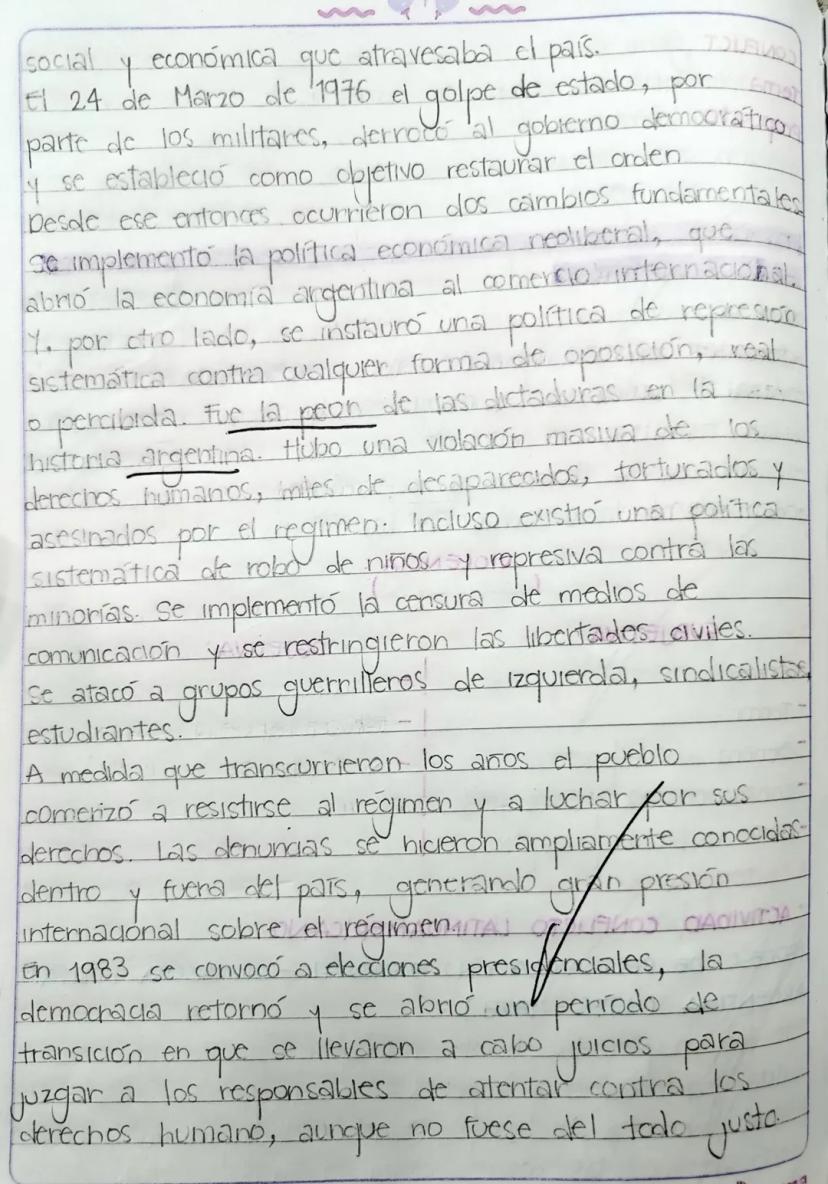 social y económica que atravesaba el país.
El 24 de Marzo de 1976 el golpe de estado, por
parte de los militares, derrocó al gobierno democrático
y se estableció como objetivo restaurar el orden
Desde ese entonces ocurrieron dos cambios fundamentales
se implementó la política económica neoliberal, que
abrió la economía argentina al comercio internacional.
Y, por otro lado, se instauró una política de represión
sistemática contra cualquier forma de oposición, real
o percibida. Fue la peor de las dictaduras en la
historia argentina. Hubo una violación masiva de los
derechos humanos, miles de desaparecidos, torturados y
asesinados por el regimen. Incluso existió una política
sistemática de robo de niños y represiva contra las
minorías. Se implementó la censura de medios de
comunicación y se restringieron las libertades civiles.
Se atacó a grupos guerrilleros de izquierda, sindicalistas,
estudiantes.
A medida que transcurrieron los años el pueblo
comenzó a resistirse al régimen y a luchar por sus
derechos. Las denuncias se hicieron ampliamente conocidas
dentro y fuera del país, generando gran presión
internacional sobre el régimen.
En 1983 se convocó a elecciones presidenciales, la
democracia retornó y se abrió un período de
transición en que se llevaron a cabo juicios para
juzgar a los responsables de atentar contra los
derechos humano, aunque no fuese del todo justo.